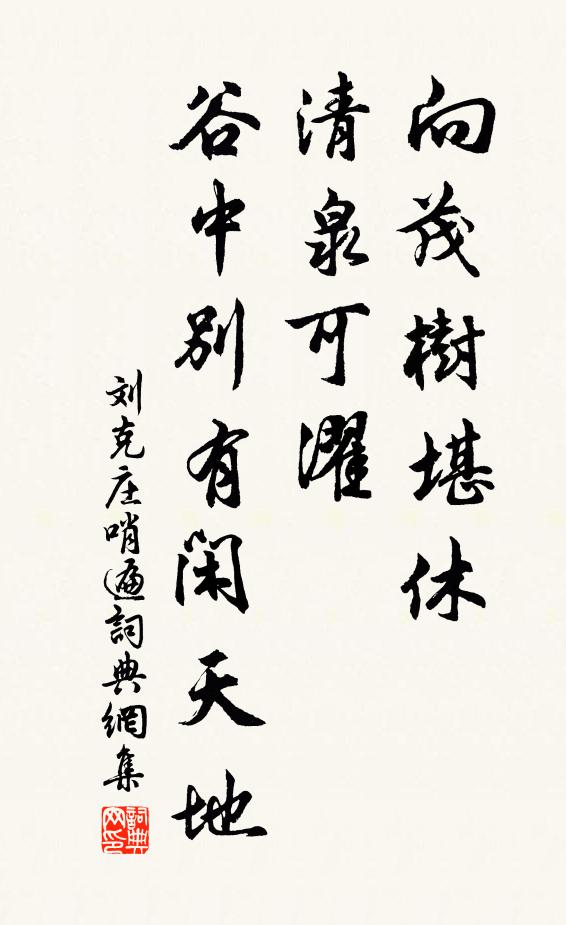 向茂樹堪休
清泉可濯
谷中別有閑天地
刘克庄哨遍詞典網集
詞典
网印